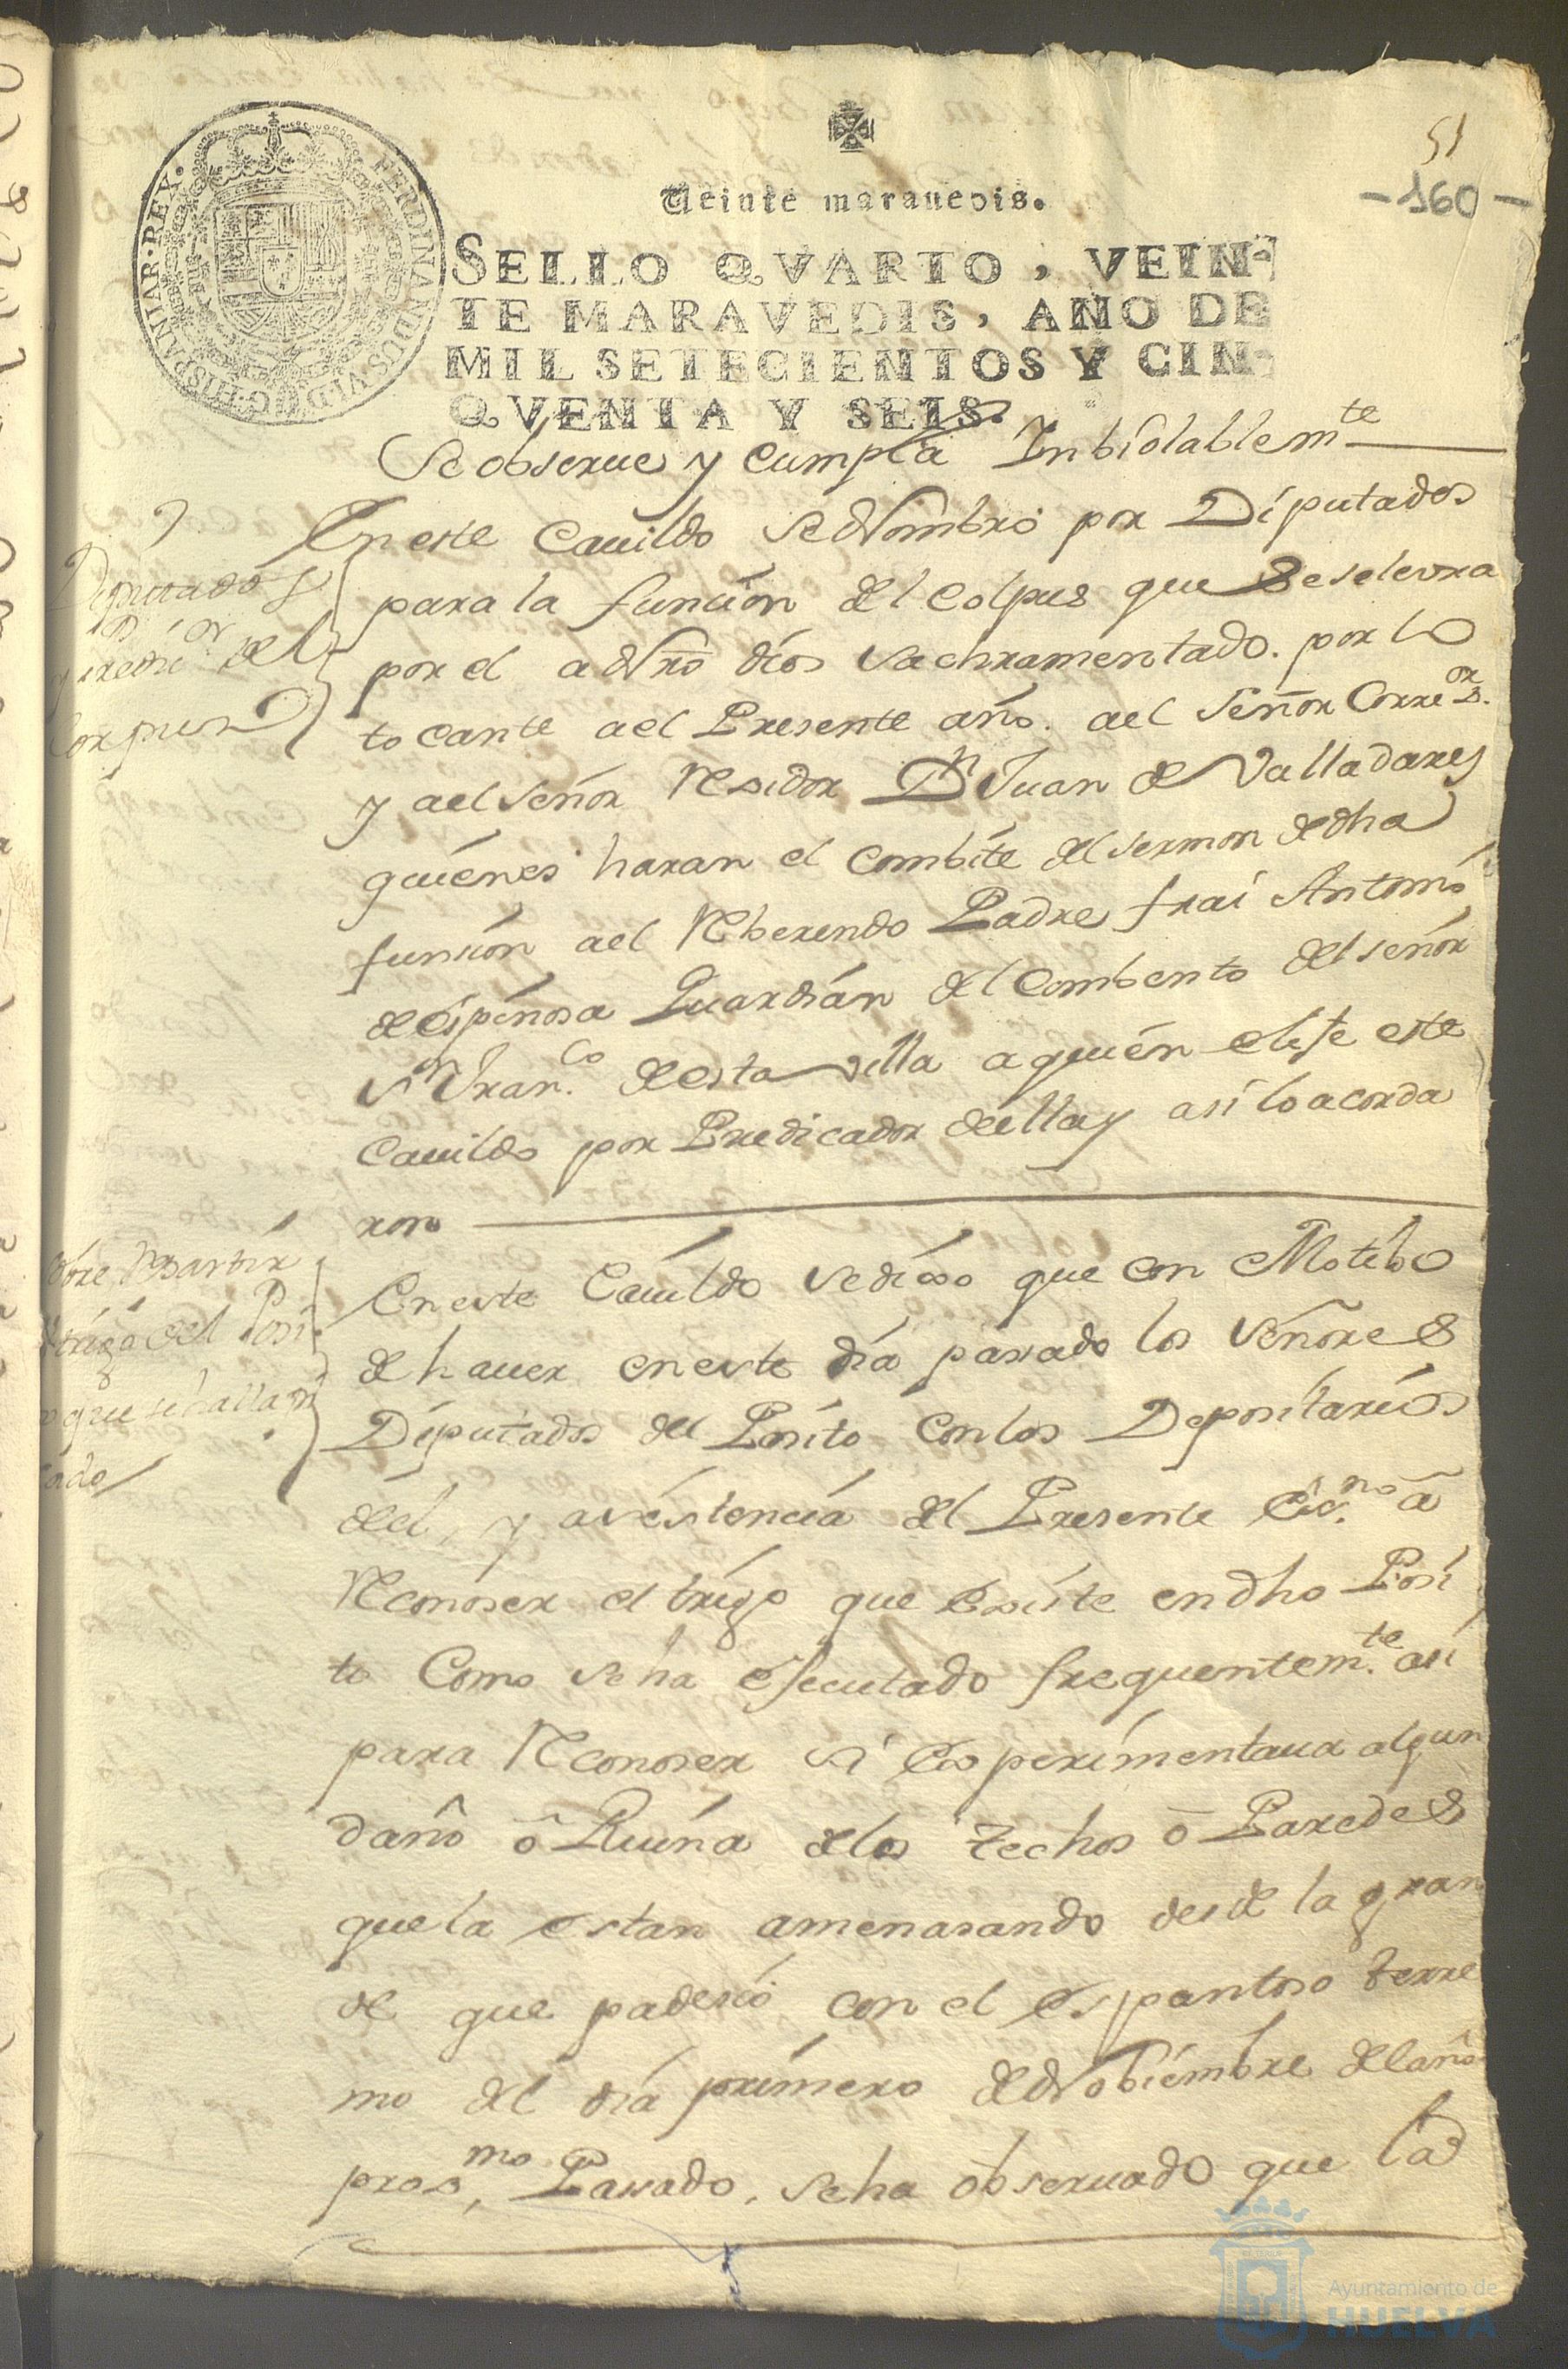 51
-160-
Veinte maravedis.
SELLO QVARTO, VEIN-
TE MARAVEDIS, AÑO DE
MIL SETECIENTOS Y CIN-
QVENTA Y SEIS.
FERDINANDUS VI D G HISPANIAR REX
Se obserue y cumpla Inbiolablemte
Diputados
y predicor del
Corpus
En este Cauildo se Nombró por Diputados
para la funsion del Colpus que se selevra
por el a Nro dios Sachramentado. por lo
tocante a el Presente año. a el Señor Correor.
y a el señor Residor Dn Juan de Valladares
quienes haran el Combite del sermon de dha
funsion a el Reberendo Padre frai Antonio
de Espinosa Guardian del Combento del señor
Sn Franco de esta villa a quien elije este
Cauildo por Predicador de ella y asi lo acorda
ron
trigo del Posi
que se halla
En este Cauildo se dixo que con Motibo
de hauer en este dia passado los Señores
Diputados del Posito con los Depositarios
de el, y asistencia del Presente Esno á
Reconoser el trigo que Existe en dho Posi
to Como se ha ejecutado frequentemte asi
para Reconoser si Esperimentaua algun
daño ó Ruina de los techos ó Paredes
que la estan amenasando desde la gran
de que padesió con el Espantoso terre
mo del dia primero de Nobiembre del año
proxmo Passado, se ha obseruado que la
Ayuntamiento de
HUELVA